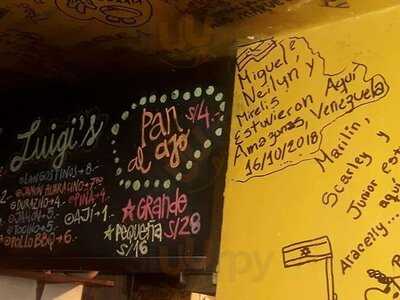 Luigi's
LANGOSTINOS +8.-
JAMÓN AHUMADO +7.00
DURAZNO +4.-
PIÑA +4.-
JAMÓN +5.-
AJÍ +1.-
TOCINO +5.-
POLLO BBQ +6.-
Pan
al ajo
S/4.-
GRANDE
S/28
Pequeña
S/16
Miguel,
Neilyn y
Mirelis
Estuvieron Aquí
Amazonas, Venezuela
16/10/2018
Marilin,
Scarley y
Junior est
aquí
Aracelly...